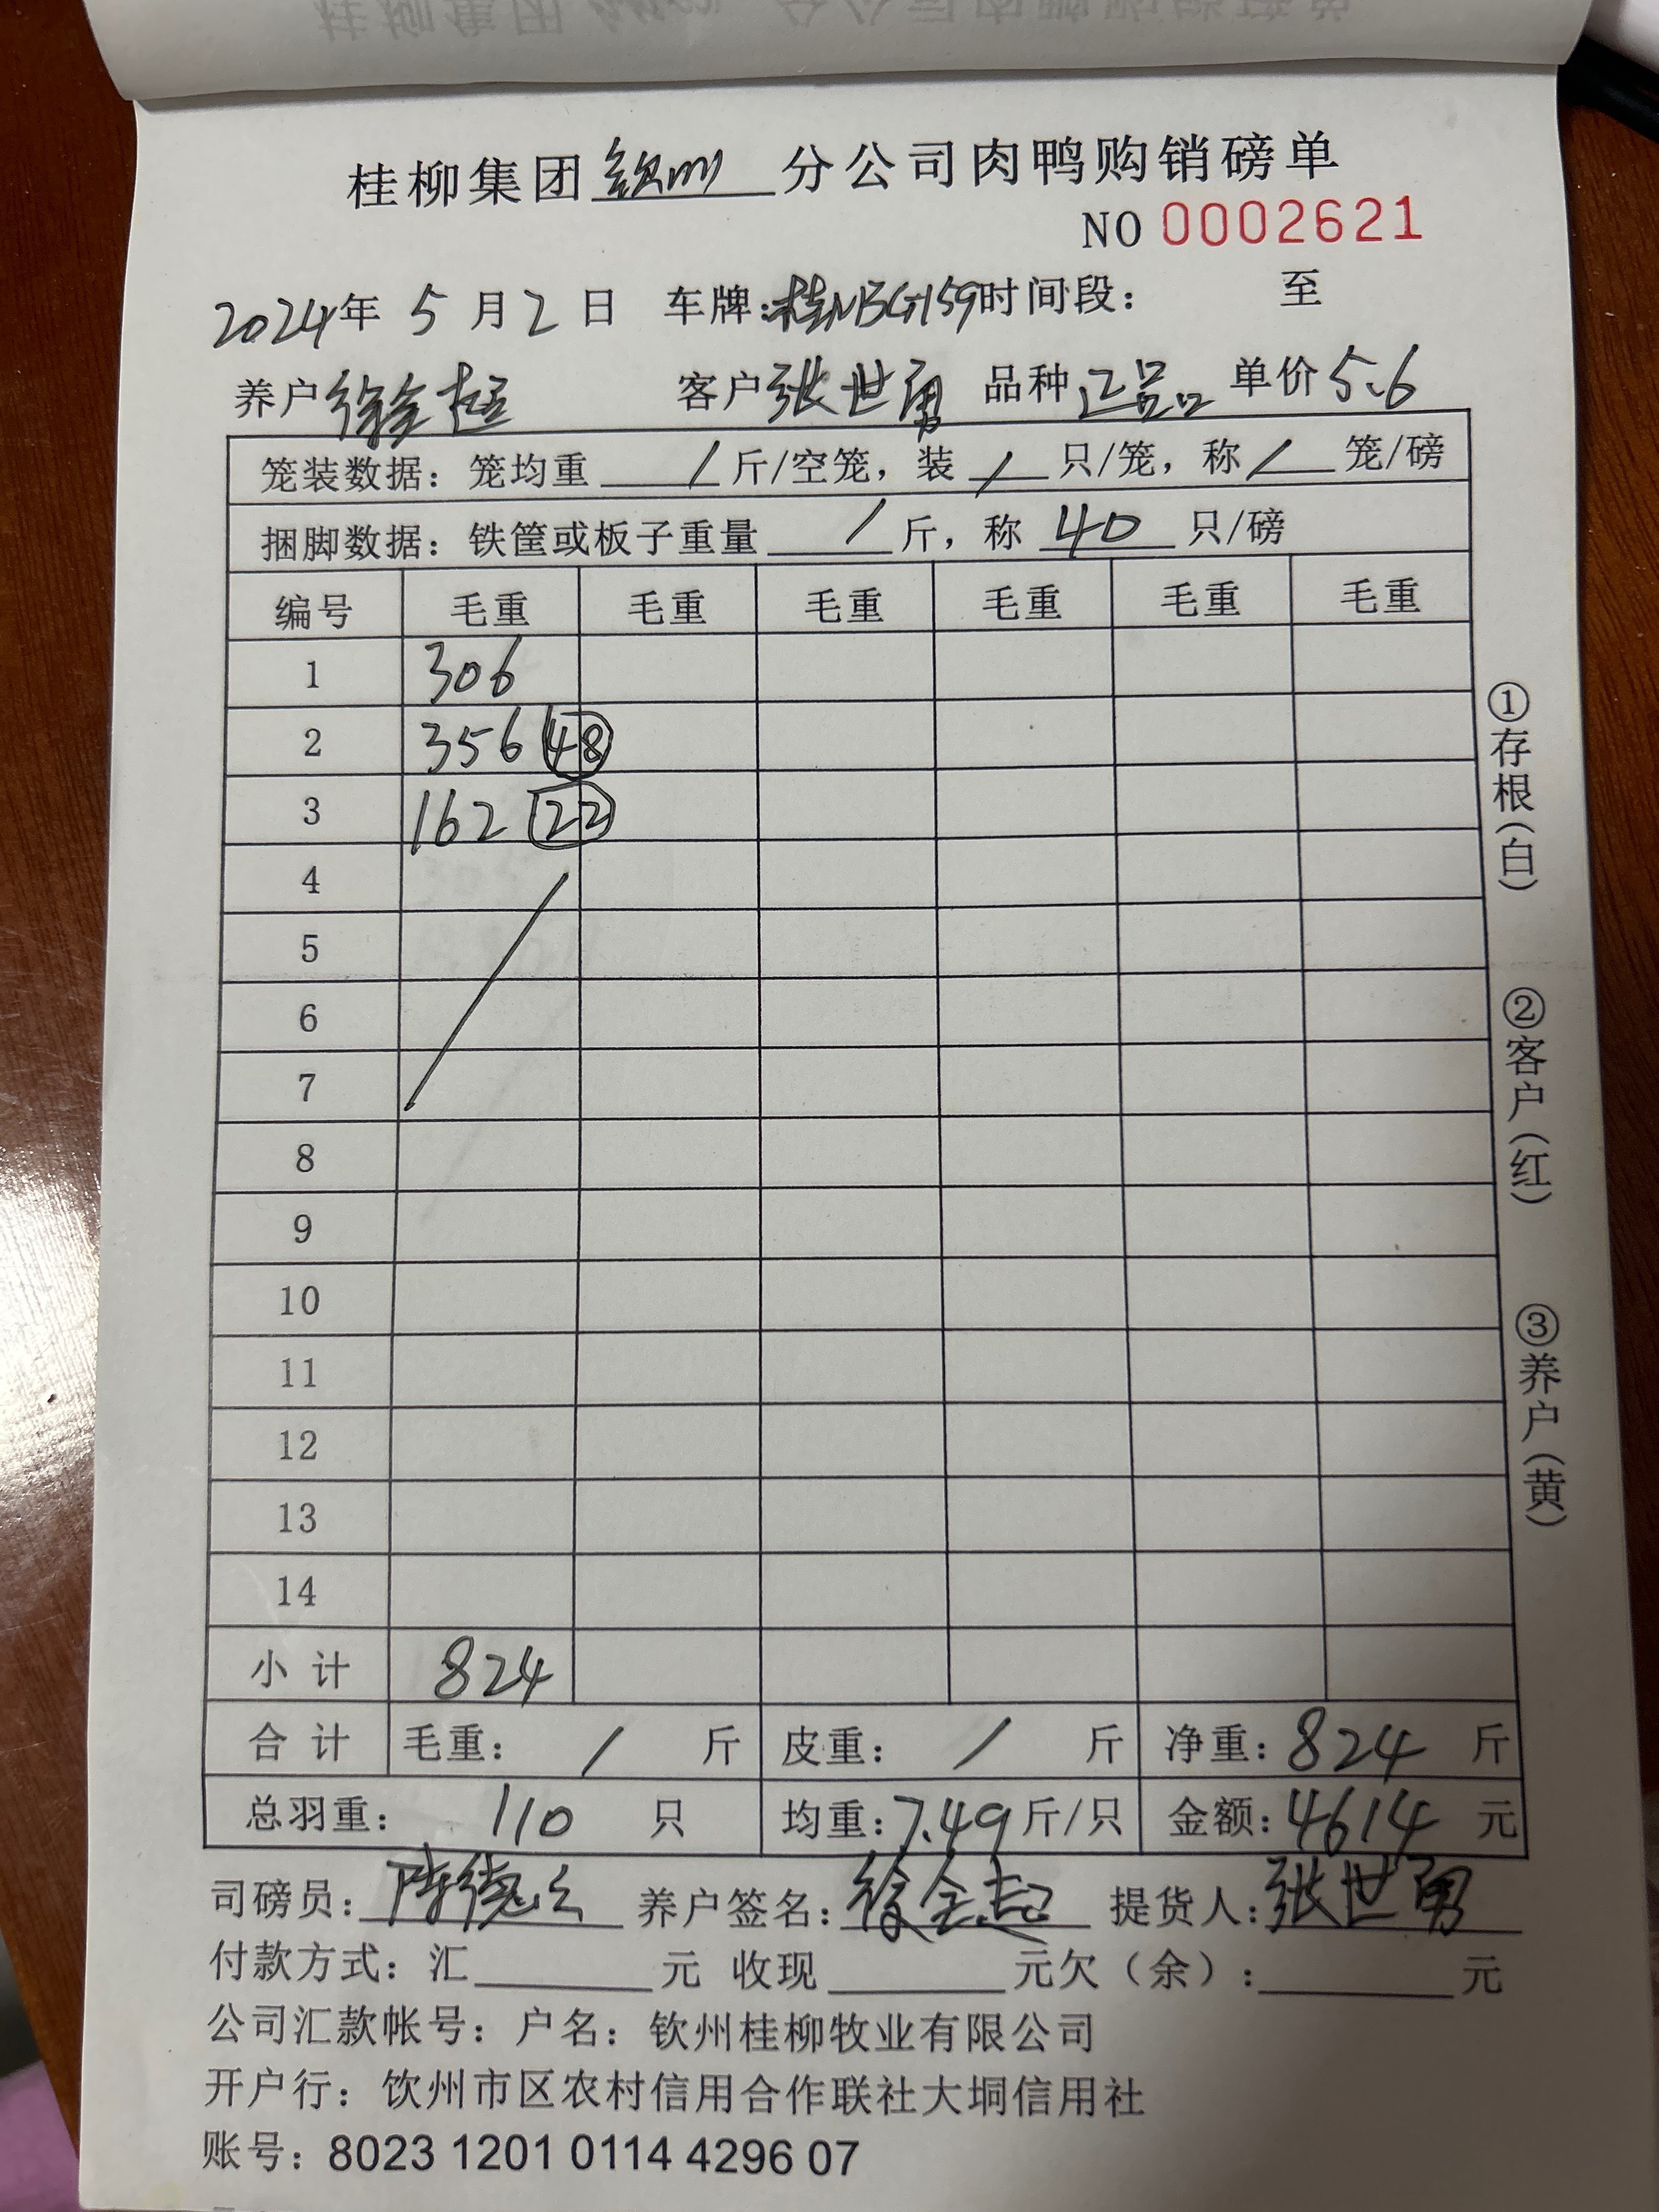 桂柳集团钦州分公司肉鸭购销磅单
NO 0002621
2024年 5 月 2 日 车牌:桂NBG159 时间段: 至
养户 徐全超 客户 张世勇 品种 正品 单价 5.6
笼装数据: 笼均重 / 斤/空笼, 装 / 只/笼, 称 / 笼/磅
捆脚数据: 铁筐或板子重量 / 斤, 称 40 只/磅
编号 毛重 毛重 毛重 毛重 毛重 毛重
1 306
2 356 48
3 162 22
4
5
6
7
8
9
10
11
12
13
14
小计 824
合计 毛重: / 斤 皮重: / 斤 净重: 824 斤
总羽重: 110 只 均重: 7.49 斤/只 金额: 4614 元
司磅员: 陈德 养户签名: 徐全超 提货人: 张世勇
付款方式: 汇 元 收现 元欠(余): 元
公司汇款帐号: 户名: 钦州桂柳牧业有限公司
开户行: 钦州市区农村信用合作联社大垌信用社
账号: 8023 1201 0114 4296 07
①存根(白)
②客户(红)
③养户(黄)